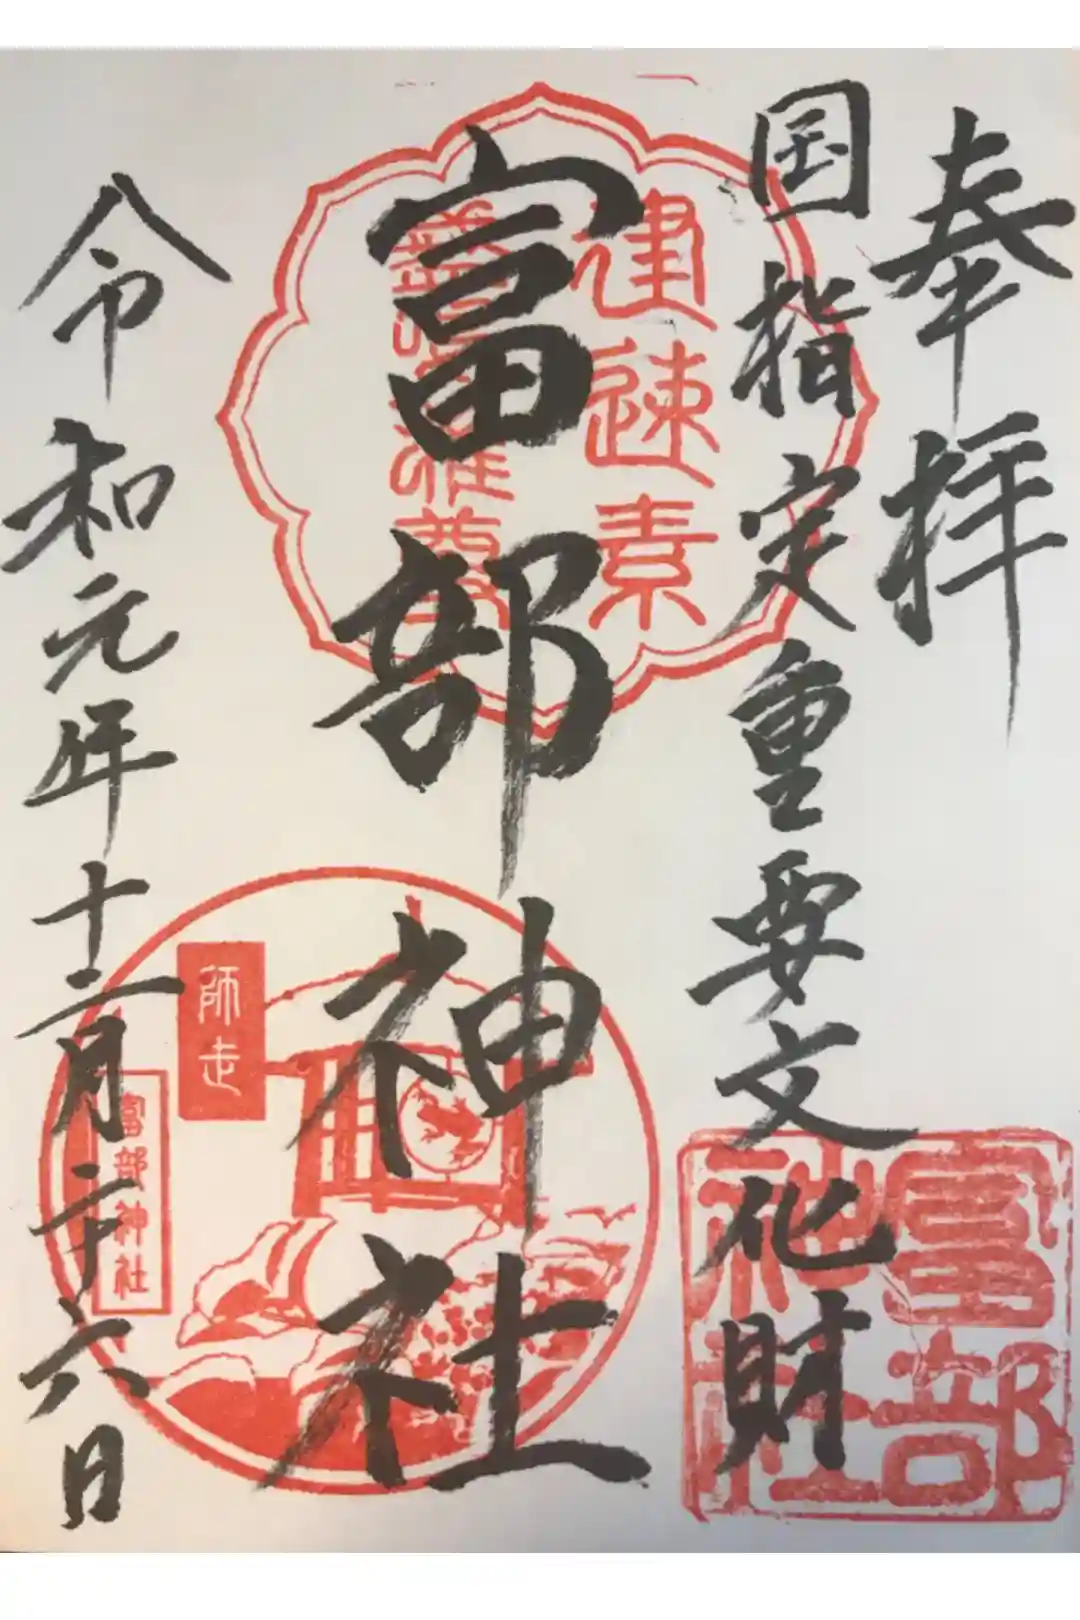 奉拝
国指定重要文化財
建速素
尊
富部神社
富部神社
師走
富部神社
令和元年十二月二十六日